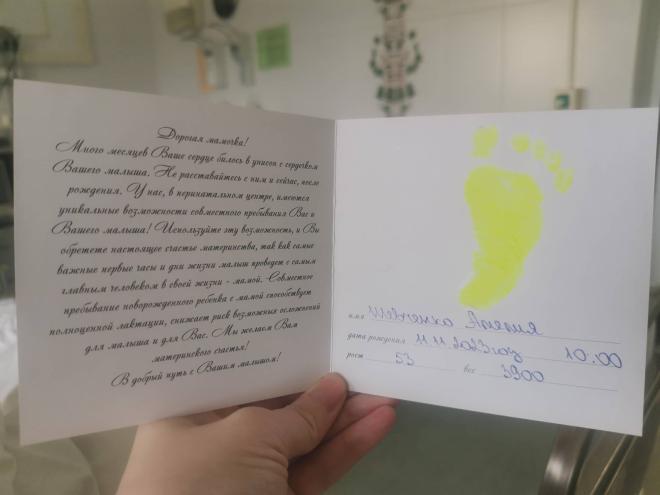 Дорогая мамочка!
Много месяцев Ваше сердце билось в унисон с сердечком
Вашего малыша. Не расставайтесь с ним и сейчас, после
рождения. У нас, в перинатальном центре, имеются
уникальные возможности совместного пребывания Вас и
Вашего малыша! Используйте эту возможность, и Вы
обретете настоящее счастье материнства, так как самые
важные первые часы и дни жизни малыш проведет с самым
главным человеком в своей жизни - мамой. Совместное
пребывание новорожденного ребенка с мамой способствует
полноценной лактации, снижает риск возможных осложнений
для малыша и для Вас. Мы желаем Вам
материнского счастья!
В добрый путь с Вашим малышом!
имя Шевченко
дата рождения 11.11.2023 10.00
рост 53 вес 3900